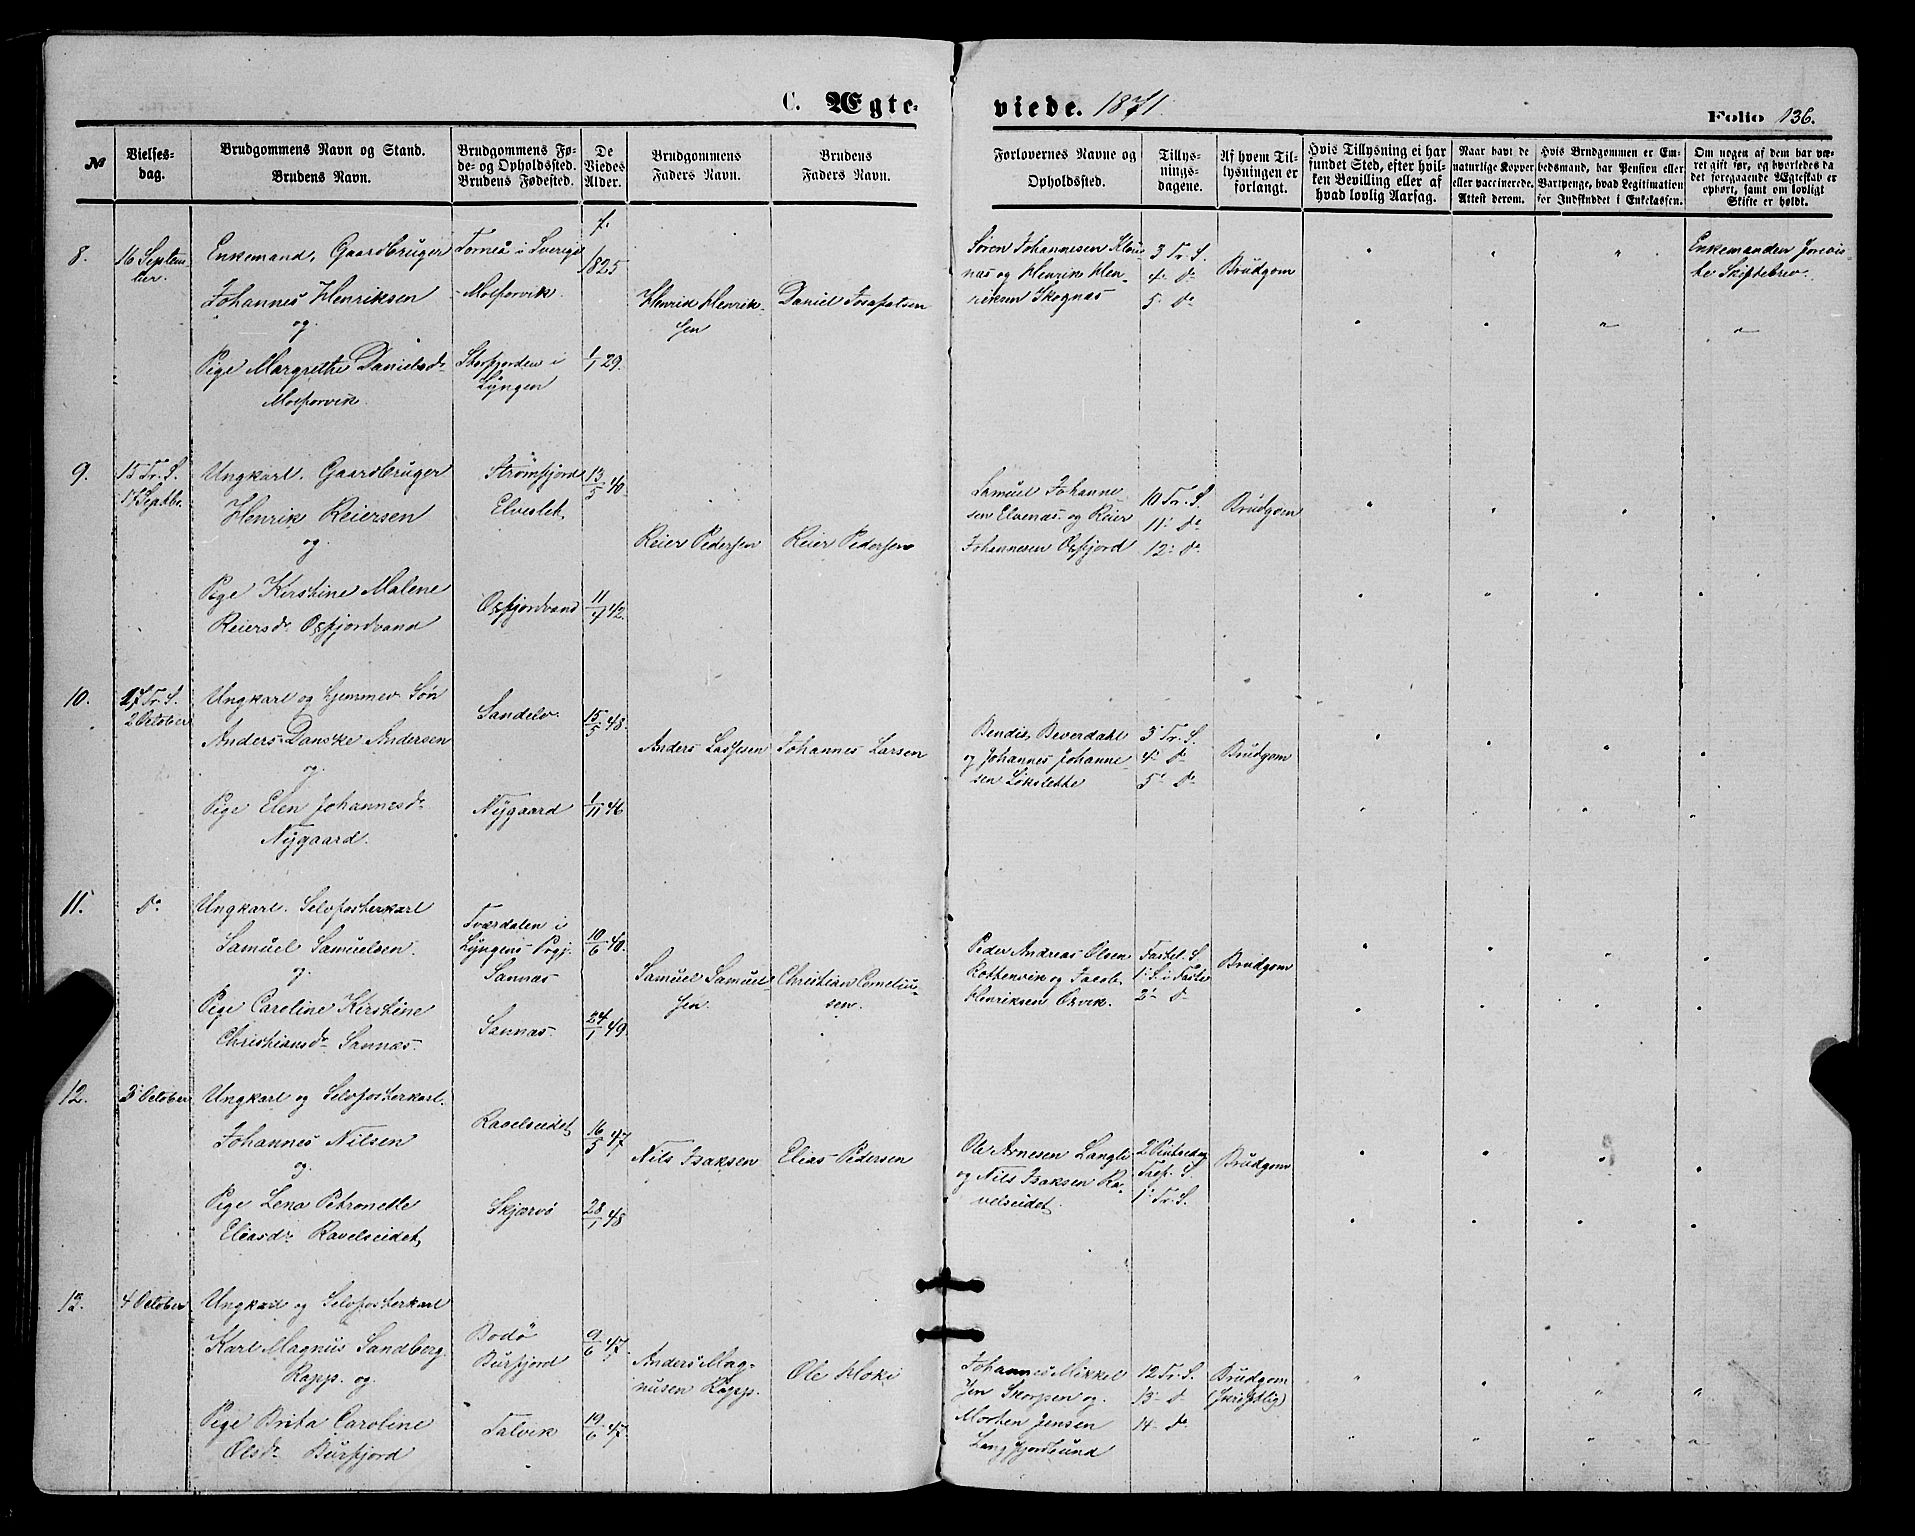 C. Ægte-
viede. 1871.
Folio 136.
№
Vielses-
dag.
Brudgommens Navn og Stand.
Brudens Navn.
Brudgommens Fø-
de- og Opholdssted.
Brudens Fødested.
De
Viedes
Alder.
Brudgommens
Faders Navn.
Brudens
Faders Navn.
Forlovernes Navne og
Opholdssted.
Tillys-
nings-
dagene.
Af hvem Til-
lysningen er
forlangt.
Hvis Tillysning ei har
fundet Sted, efter hvil-
ken Bevilling eller af
hvad lovlig Aarsag.
Naar havt de
naturlige Kopper
eller vaccinerede.
Attest derom.
Hvis Brudgommen er Em-
bedsmand, har Pension eller
Vartpenge, hvad Legitimation
for Indskuddet i Enkekassen.
Om nogen af dem har væ-
ret gift før, og hvorledes da
det foregaaende Ægteskab er
ophørt, samt om lovligt
Skifte er holdt.
8.
16 Septem-
ber.
Enkemand, Gaardbruger
Johannes Henriksen
og
Pige Margrethe Danielsdr
Molforvik
Torneå i Sverige
- Molforvik.
Storfjorden i
Lyngen
f.
1825
1/1 29.
Henrik Henrik-
sen
Daniel Josafatsen
Søren Johannesen Klou-
nas og Henrik Hen-
riksen Skognas
3 Tr. S.
4 Do
5 Do
Brudgom
Enkemanden foreviis-
te Skiftebrev.
9.
15 Tr. S.
17 Septbr.
Ungkarl. Gaardbruger
Henrik Reiersen
og
Pige Kirstine Malene
Reiersdr Oxfjordvand
Strømfjord
Elvestet
Oxfjordvand
13/5 40
11/7 42.
Reier Pedersen
Reier Pedersen
Samuel Johanne
sen Elvenas og Reier
Johannesen Oxfjord
10 Tr. S.
11 Do
12 Do
Brudgom
10.
17 Tr. S.
2 October
Ungkarl og hjemmev. Søn
Anders Danske Andersen
og
Pige Elen Johannesdr
Nygaard.
Sandelv.
Nygaard
15/5 48.
1/11 46
Anders Lassesen
Johannes Larsen
Bendix Beverdahl
og Johannes Johanne-
sen Løkslette
3 Tr. S.
4 Do
5 Do
Brudgom
11.
Do
Ungkarl. Selvfosterkarl
Samuel Samuelsen.
og
Pige Caroline Kirstine
Christiansdr Sannas.
Tværdalen i
Lyngens Prgj.
Sannas
Sannas
10/6 40.
24/1 49.
Samuel Samuel-
sen.
Christian Corneliu-
sen.
Peder Andreas Olsen
Rottenvik og Jacob
Henriksen Oxvik.
Fastel. S.
1 S. i Faste
2 Do
Brudgom
12.
3 October
Ungkarl og Selvfosterkarl.
Johannes Nilsen
og
Pige Lena Petronelle
Eliasdr Ravelseidet
Ravelseidet
Skjærvø
16/5 47
28/1 48
Nils Isaksen
Elias Pedersen
Ole Arnesen Langli
og Nils Isaksen Ra-
velseidet
2 Pintsedag
Tref. S.
1 Tr. S.
Brudgom
13.
4 October
Ungkarl og Selvfosterkarl
Karl Magnus Sandberg
Rapp. og
Pige Brita Caroline
Olsdr Burfjord
Bodø
Burfjord
Talvik
9/6 47.
19/6 47.
Anders Mag-
nusen Rapp.
Ole Hoki
Johannes Mikkel
sen Skorpen og
Morten Jensen
Langfjordsund
12 Tr. S.
13 D
14 Do
Brudgom
(skriftlig)